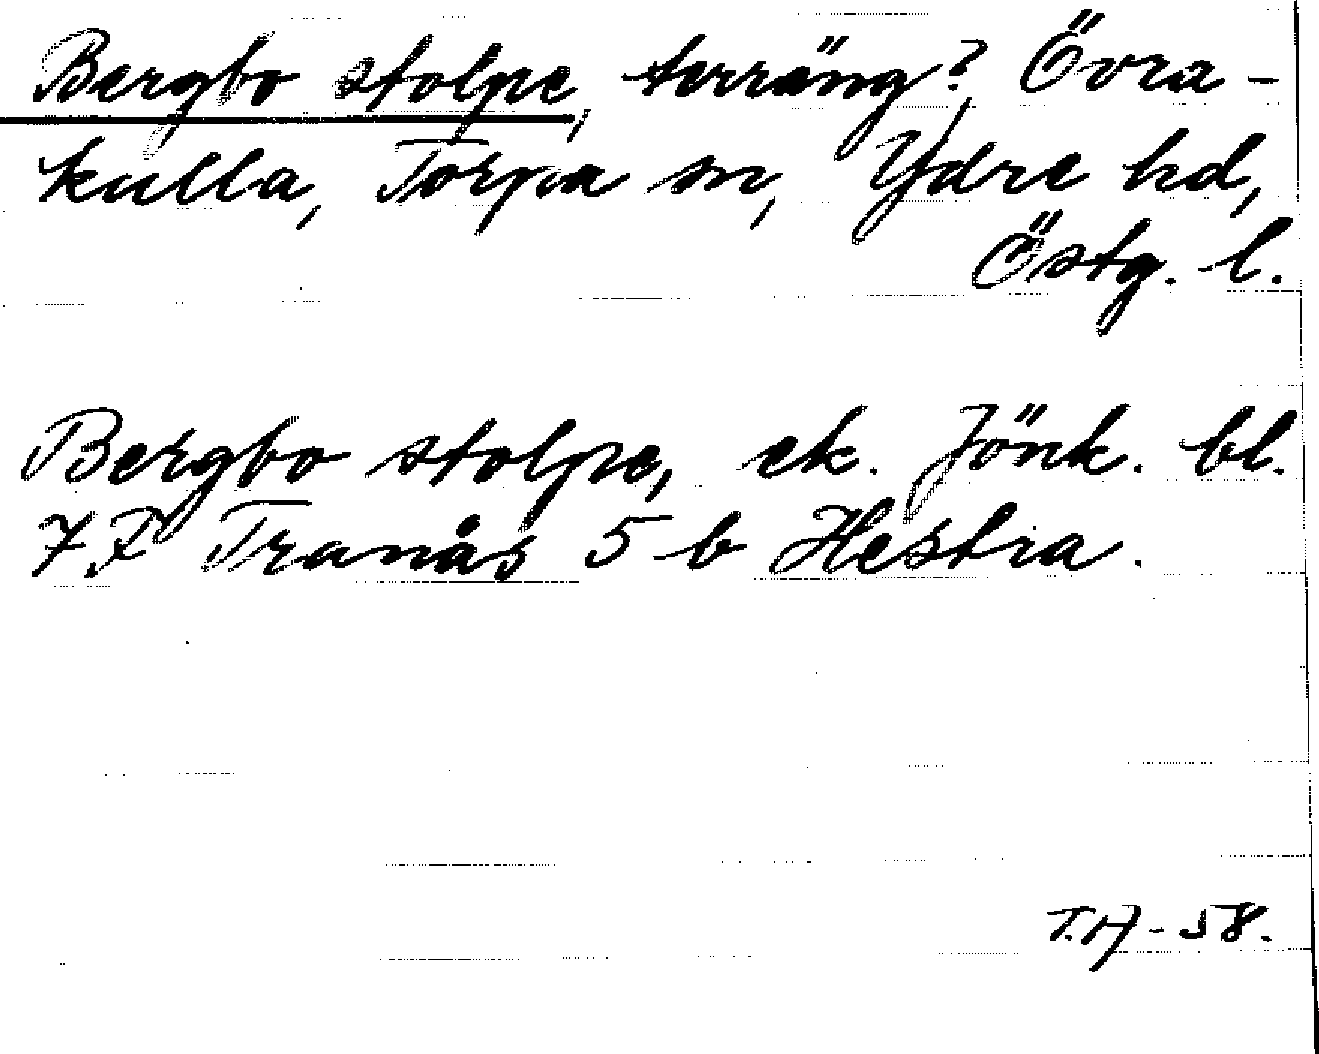 Bergbo stolpe, terräng?, Övra-
kulla, Torpa sn, Ydre hd,
Östg. l.
Bergbo stolpe, ek. Jönk. bl.
7 F Tranås 5 b Hestra.
T.A-58.